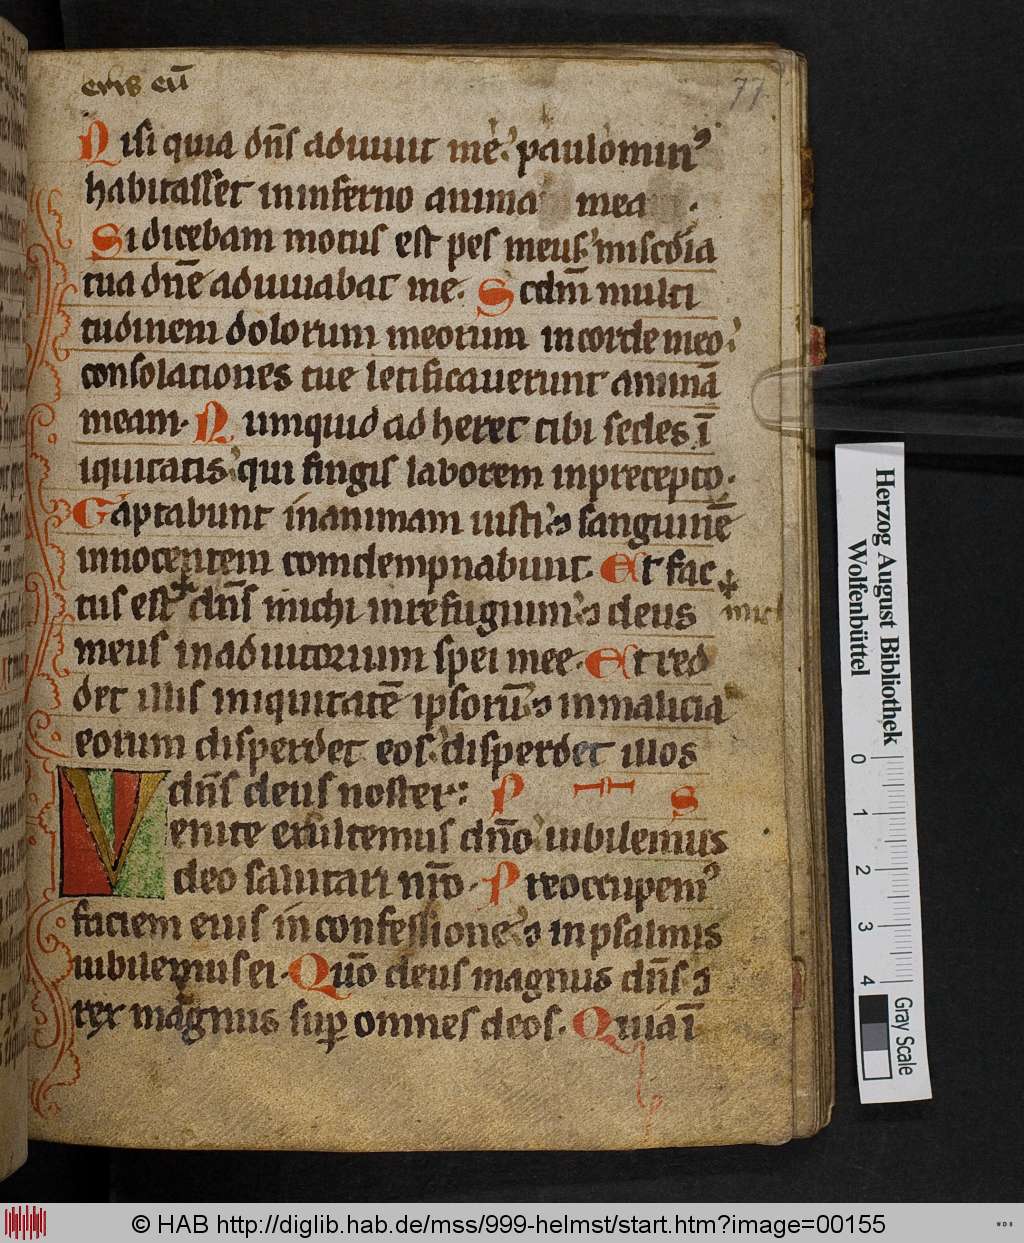 eris eū
77
Nisi quia dn̄s adiuuit me paulominꝰ
habitasset in inferno anima mea
Si dicebam motus est pes meus miscdia
tua dn̄e adiuuabat me. Scdm̄ multi
tudinem dolorum meorum in corde meo
consolationes tue letificauerunt animā
meam. Numquid ad heret tibi sedes ī
iquitatis qui fingis laborem in precepto.
Captabunt in animam iusti ⁊ sanguinē
innocentem comdempnabunt. Et fac
tus est dn̄s michi in refugium ⁊ deus
meus in adiutorium spei mee. Et red
det illis iniquitatē ipsorū ⁊ in malicia
eorum disperdet eos disperdet illos
dn̄s deus noster: P S
Venite exultemus dn̄o iubilemus
deo salutari nr̄o. Preoccupemꝰ
faciem eius in confessione ⁊ in psalmis
iubilemus ei. Qūo deus magnus dn̄s ⁊
rex magnus suꝑ omnes deos. Quia ī
Herzog August Bibliothek
Wolfenbüttel
0 1 2 3 4
Gray Scale
© HAB http://diglib.hab.de/mss/999-helmst/start.htm?image=00155